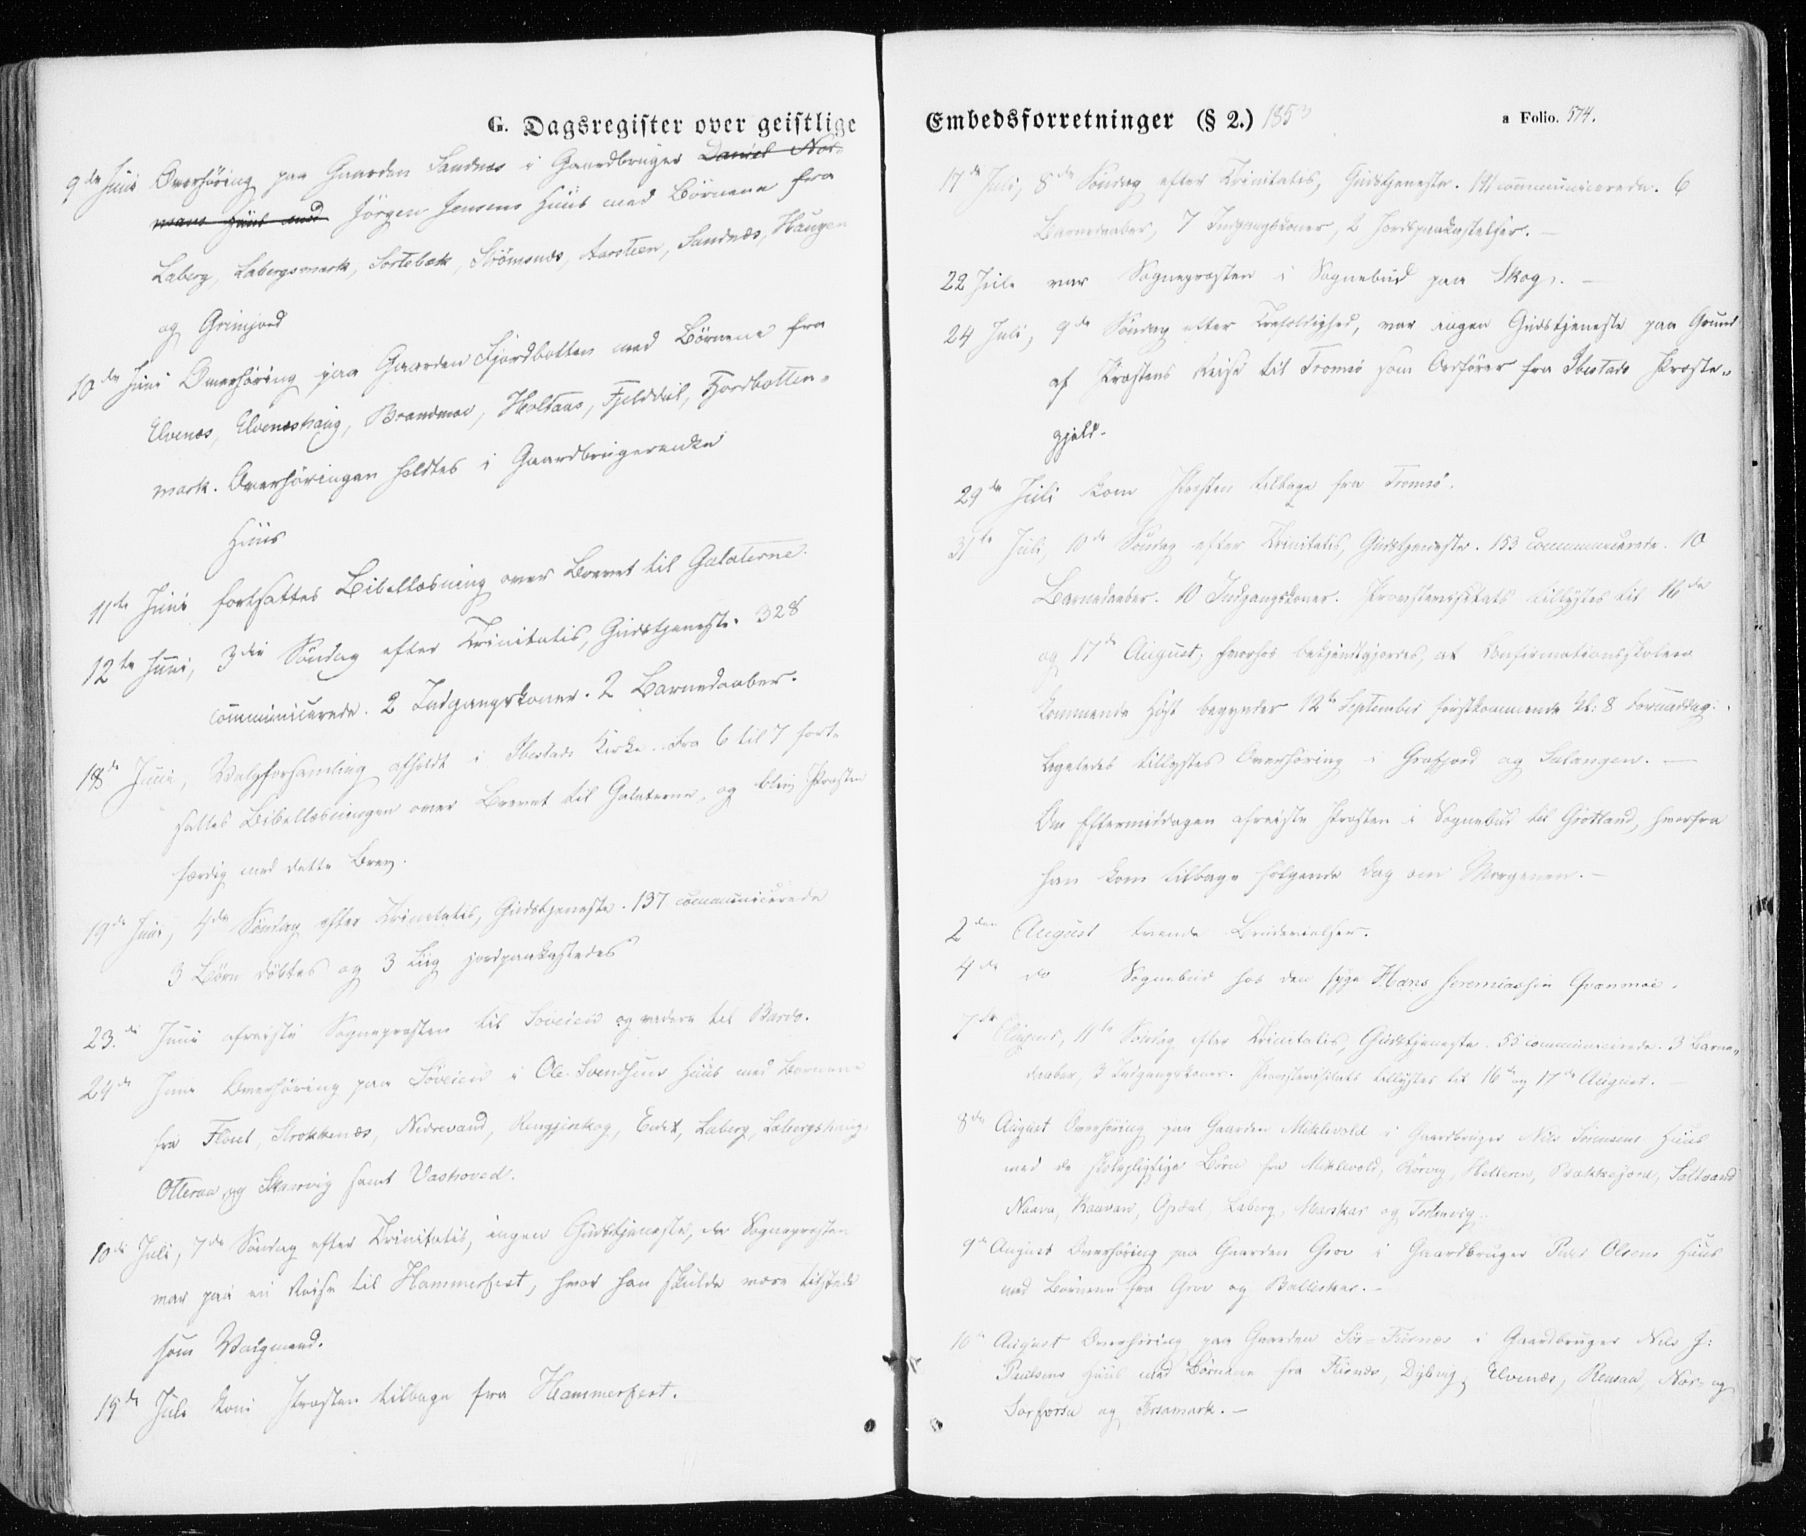 G. Dagsregister over geistlige
9de Juni Overhøring paa Gaarden Sandnæs i Gaardbruger Daniel Nor-
mans Huus med Jørgen Jensens Huus med Børnene fra
Laberg, Labergsmark, Sortebæk, Strømsnæs, Aarsteen, Sandnæs, Haugen
og Grinjord
10de Juni Overhøring paa Gaarden Fjordbotten med Børnene fra
Elvenæs, Elveneshaug, Brandmoe, Holtaas, Fjelddal, Fjordbotten-
mark. Overhøringen holdtes i Gaardbrugerenken
Huus
11te Juni fortsattes Bibellæsning over Brevet til Galaterne.
12te Juni, 3die Søndag efter Trinitatis, Gudstjeneste. 328
communicerede. 2 Indgangskoner. 2 Barnedaaber.
18de Juni, Valgforsamling afholdt i Ibestads Kirke. Fra 6 til 7 fort-
sattes Bibellæsningen over Brevet til Galaterne, og blev Præsten
færdig med dette Brev.
19de Juni, 4de Søndag efter Trinitatis, Gudstjeneste. 137 communicerede
3 Børn døbtes og 3 Liig jordpaakastedes
23de Juni afreiste Sognepræsten til Søveien og videre til Bardo.
24de Juni Overhøring paa Søveien i Ole Svendsens Huus med Børnene
fra Floret, Strokkenæs, Nedrevand, Rengjerskog, Laberg, Labergshaug,
Otteraa og Skarvig samt Vashoved.
10de Juli, 7de Søndag efter Trinitatis, ingen Gudstjeneste, da Sognepræsten
var paa en Reise til Hammerfest, hvor han skulde være tilstede
som Valgmand.
15de Juli kom Præsten tilbage fra Hammerfest.
Embedsforretninger (§ 2.) 1853 a Folio. 574.
17de Juli, 8de Søndag efter Trinitatis, Gudstjeneste. communicerede. 6
Barnedaaber, 7 Indgangskoner, 2 Jordpaakastelser. —
22 Juli var Sognepræsten i Sognebud paa Skog. —
24 Juli, 9de Søndag efter Trefoldighed, var ingen Gudstjeneste paa Grund
af Præstens Reise til Tromsø som Ordfører fra Ibestads Præste-
gjeld.
29de Juli kom Præsten tilbage fra Tromsø.
31te Juli, 10de Søndag efter Trinitatis, Gudstjeneste. 153 communicerede. 10
Barnedaaber. 10 Indgangskoner. Provstevisitats tillystes til 16de
og 17de August, hvorhos bekjendtgjordes, at Confirmationsskolen
kommende Høst begynder 12te September førstkommende Kl: 8 Formiddag.
Ligeledes tillystes Overhøring i Grafjord og Salangen. —
Om Eftermiddagen afreiste Præsten i Sognebud til Grøtland, hvorfra
han kom tilbage følgende Dag om Morgenen. —
2den August tvende Brudevielser.
4de do Sognebud hos den syge Hans Jeremiassen
7de August, 11te Søndag efter Trinitatis, Gudstjeneste. 55 communicerede. 3 Barne-
daaber, 3 Indgangskoner. Provstevisitats tillystes til 16de og 17de August. —
8de August Overhøring paa Gaarden Meklevold i Gaardbruger Nils Sørensens Huus
med de skolepligtige Børn fra Meklevold, Rørvig, Helleren, Brakkefjord, Saltvand
Naava, Opdal, Laberg, og
9de August Overhøring paa Gaarden Grov i Gaardbruger Peder Olsens Huus
med Børnene fra Grov og Balleskar. —
10de August Overhøring paa Gaarden Sør-Furnæs i Gaardbruger Nils J:
Paulsens Huus med Børnene fra Furnæs, Elvenæs, Rensaa, Nor- og
Sørforsa og Forsamark. —